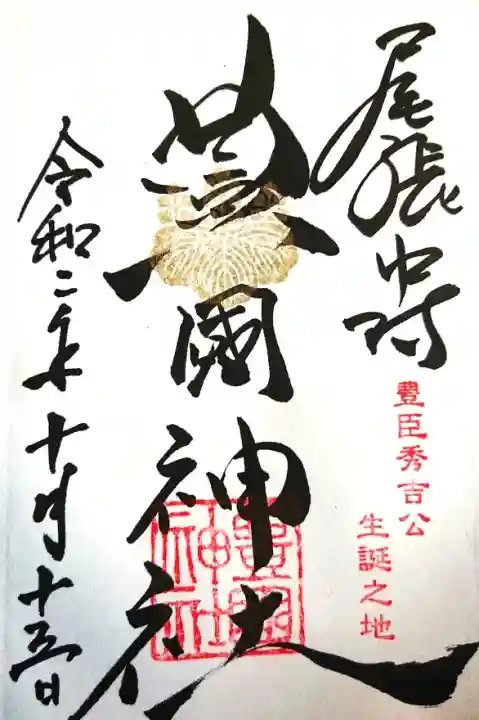 尾張中村
豊臣秀吉公
生誕之地
豊國神社
豊國
神社
令和二年十月十五日